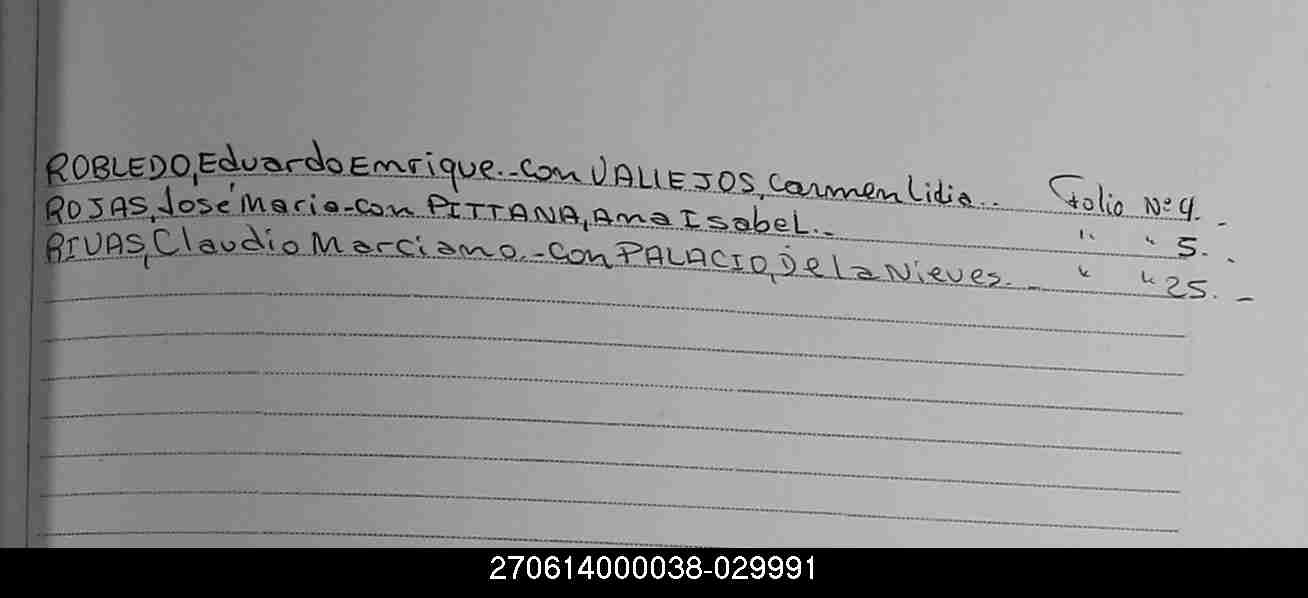 ROBLEDO, Eduardo Enrique.-con VALLEJOS, Carmen Lidia.. Folio Nº 4.-
ROJAS, José Maria-con PITTANA, Ana Isabel.- " " 5..
RIVAS, Claudio Marciano.-con PALACIO, De la Nieves.- " " 25.-
270614000038-029991